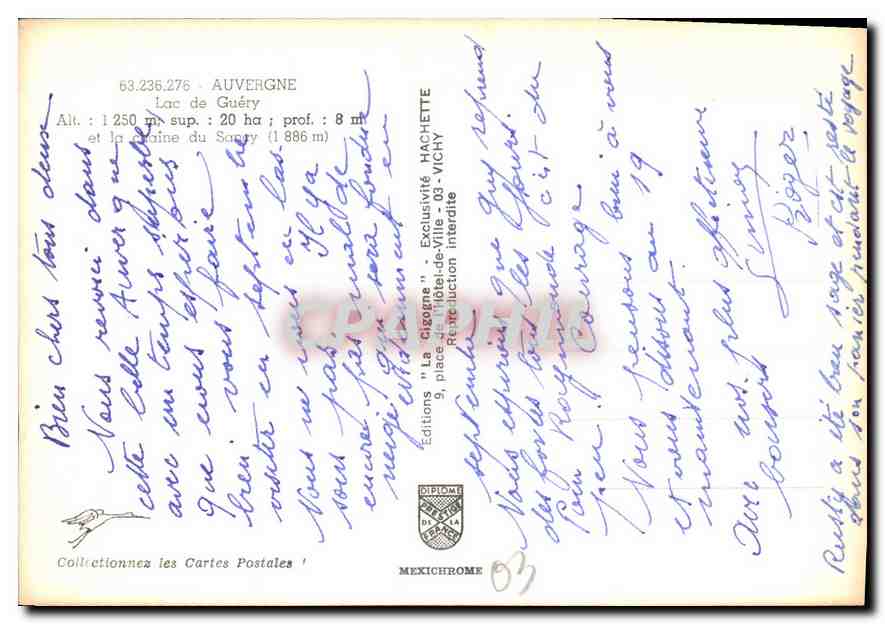 63.236.276 - AUVERGNE
Lac de Guéry
Alt. : 1 250 m, sup. : 20 ha ; prof. : 8 m
et la chaîne du Sancy (1 886 m)
Bien chers tous deux.
Nous revoici dans
cette belle Auvergne
avec un temps superbe
que nous espérons
bien vous faire
visiter en septembre
Nous ne irons en las
sous pas Il y a
encore pas mal de
neige, qui sera fondue
évidemment en
Editions "La Cigogne" - Exclusivité HACHETTE
9, place de l'Hôtel-de-Ville - 03 - VICHY
Reproduction interdite
septembre
Nous espérons que Guy reprend
des forces tous les jours.
Pour Raymonde c'est du
peu. Courage
Nous pensons bien à vous
et vous disons au 19
maintenant.
Avec nos plus affectueux
baisers
Roger
Rusty a été bien sage et est resté
dans son panier pendant le voyage
DIPLOME
PRESTIGE
DE LA
FRANCE
Collectionnez les Cartes Postales !
MEXICHROME
03
CPAPHIL